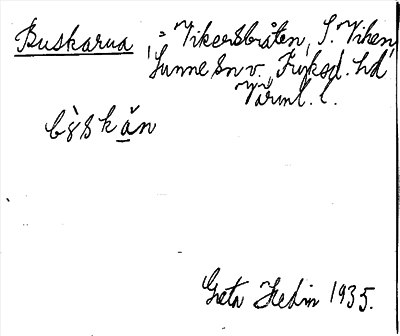 Buskarna, = Vikersbråten, S. Viken,
Sunne sn v., Fryksd. hd
Värml. l.
bỳskǎn
Greta Hedin 1935.